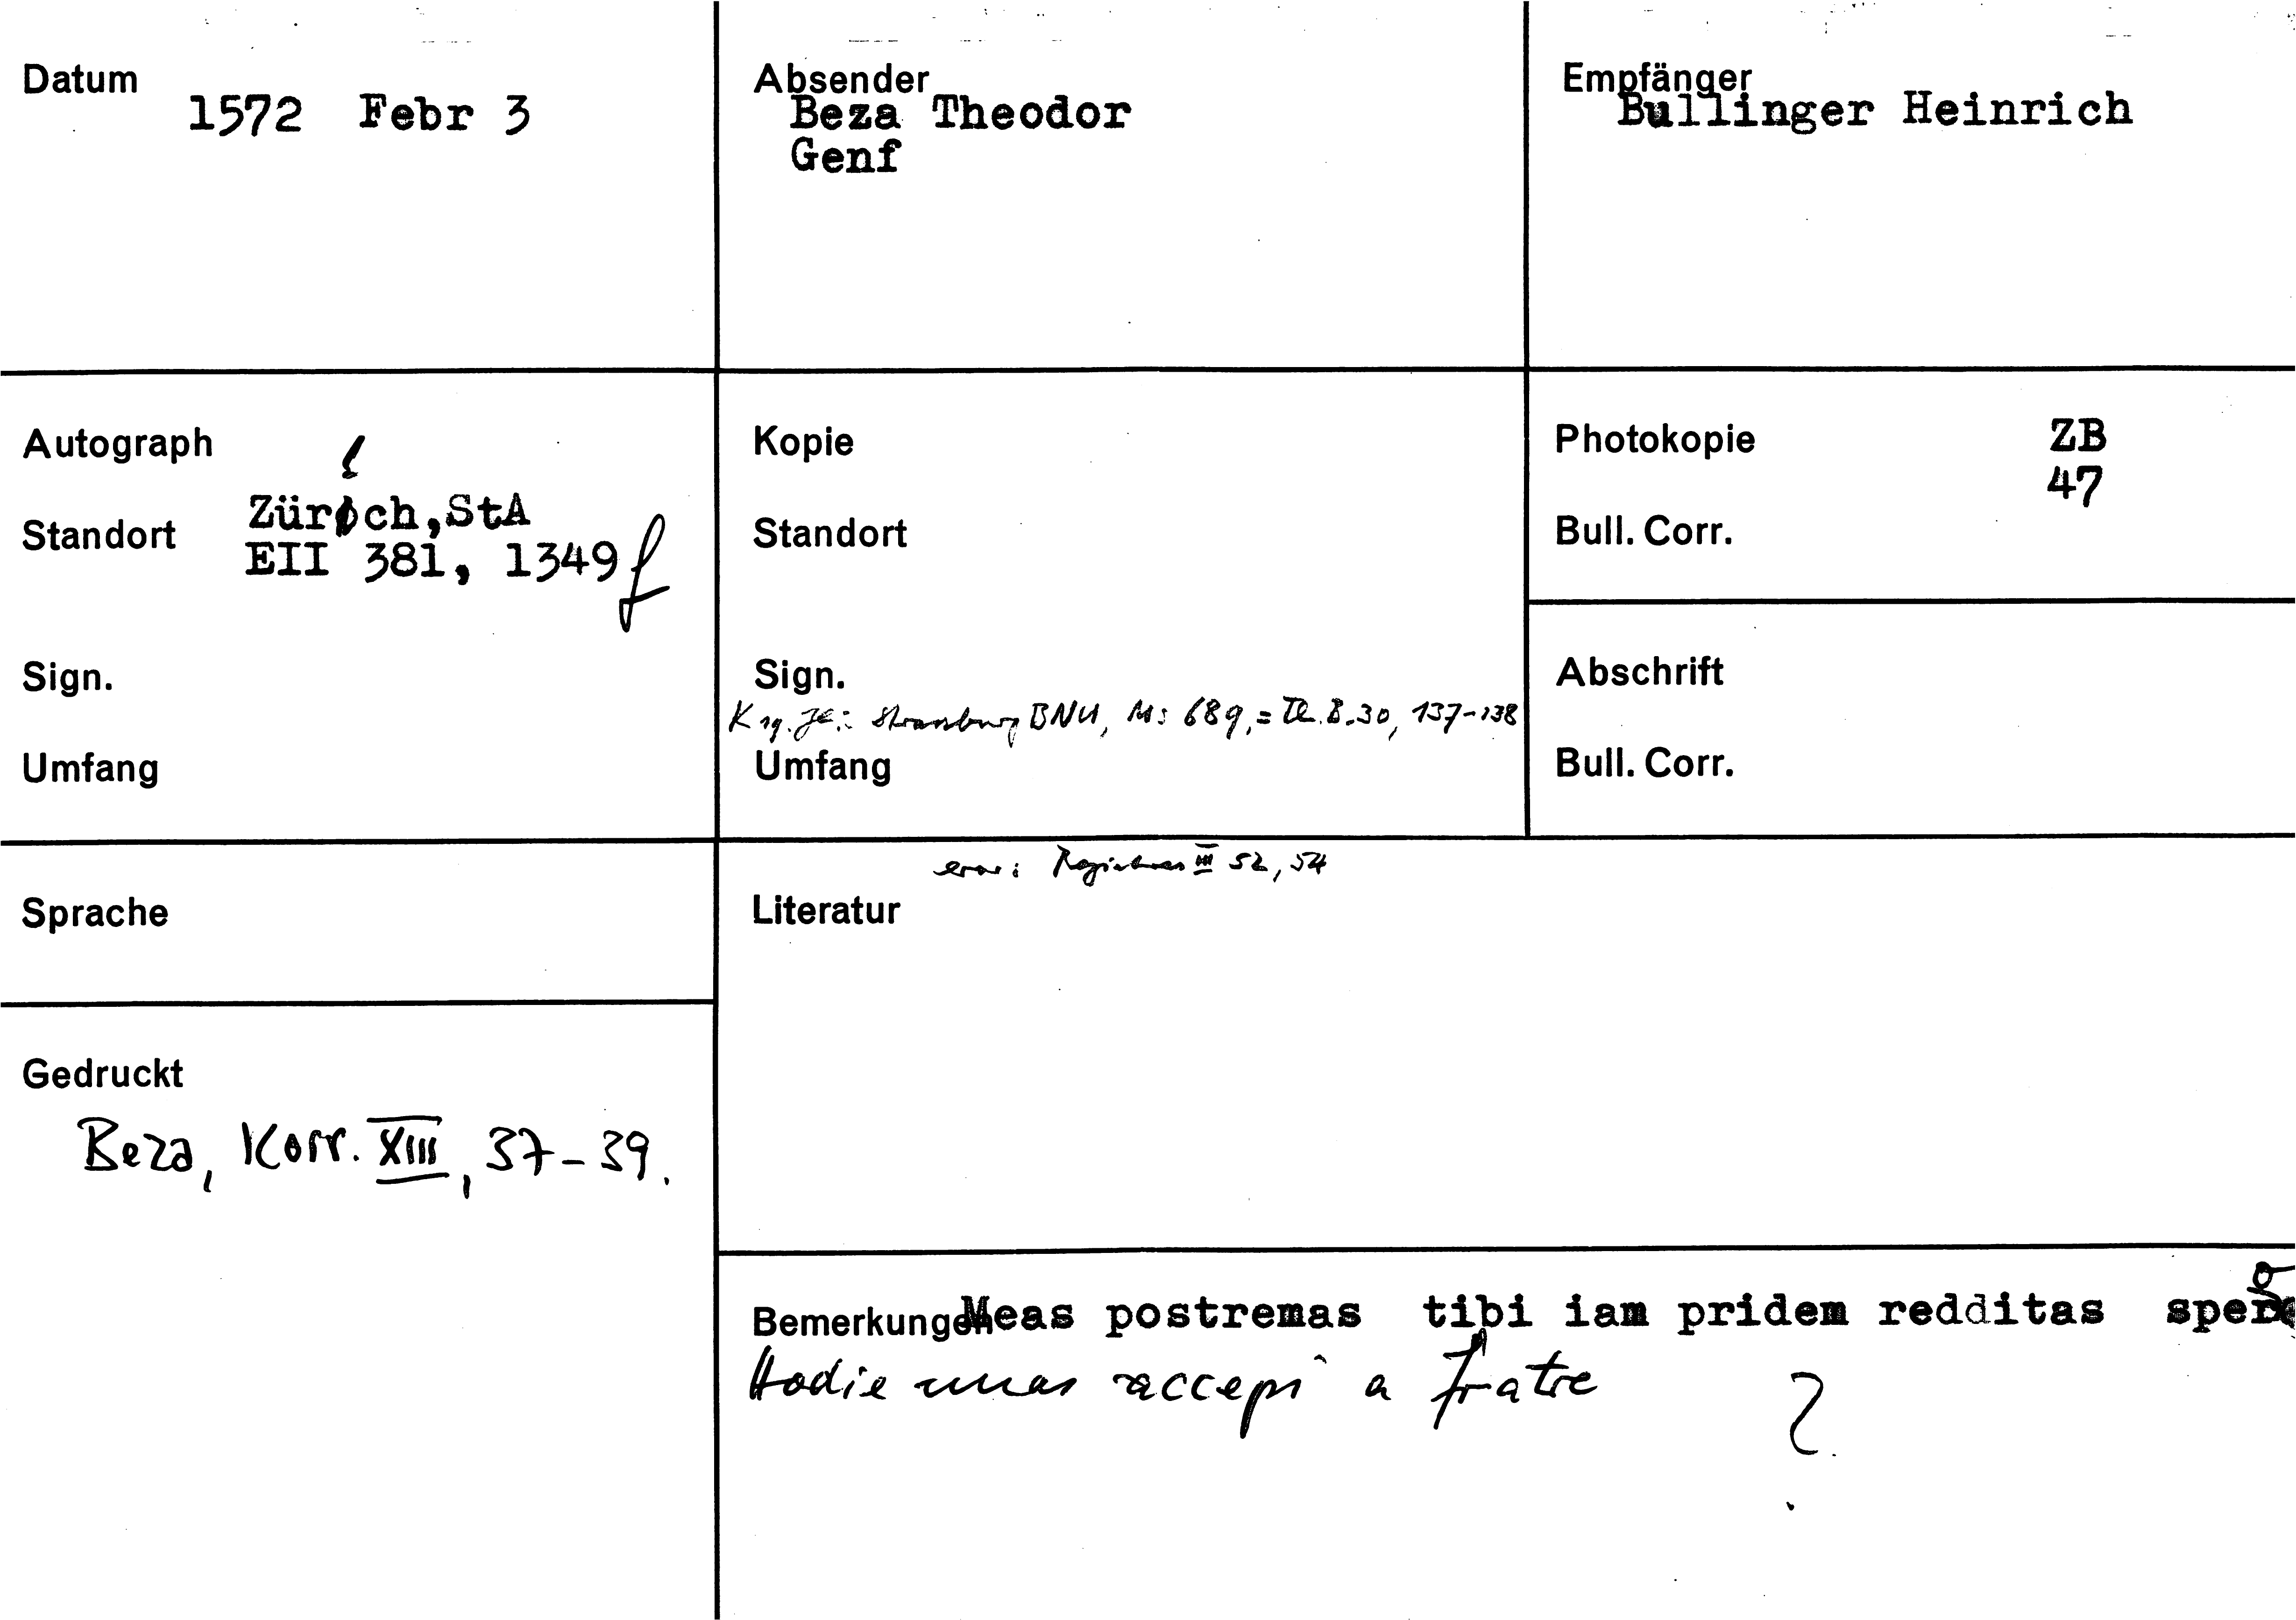 Datum
1572 Febr 3
Absender
Beza Theodor
Genf
Empfänger
Bullinger Heinrich
Autograph
Standort
Zürich, StA
EII 381, 1349 f
Sign.
Umfang
Kopie
Standort
Sign.
Strassburg BNU, Ms 689, = 137-138
Umfang
Photokopie
ZB
47
Bull. Corr.
Abschrift
Bull. Corr.
Sprache
Gedruckt
Beza, Korr. XIII, 37-39.
III 52, 54
Literatur
Bemerkungen Meas postremas tibi iam pridem redditas
Hodie unas accepi a fratre ?